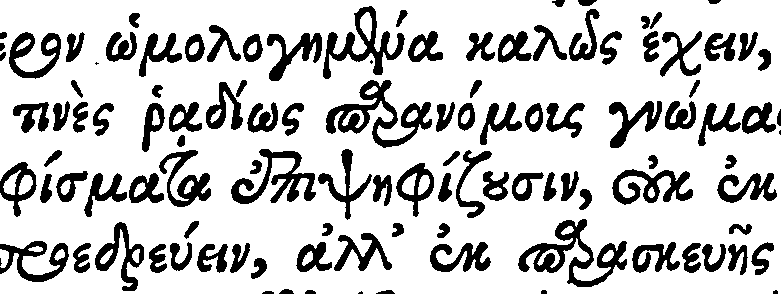 ερον ὡμολογημένα καλῶς ἔχειν,
τινὲς ῥᾳδίως παρανόμοις γνώμας
φίσματα ἐπιψηφίζουσιν, οὐκ ἐκ
προεδρεύειν, ἀλλ' ἐκ παρασκευῆς